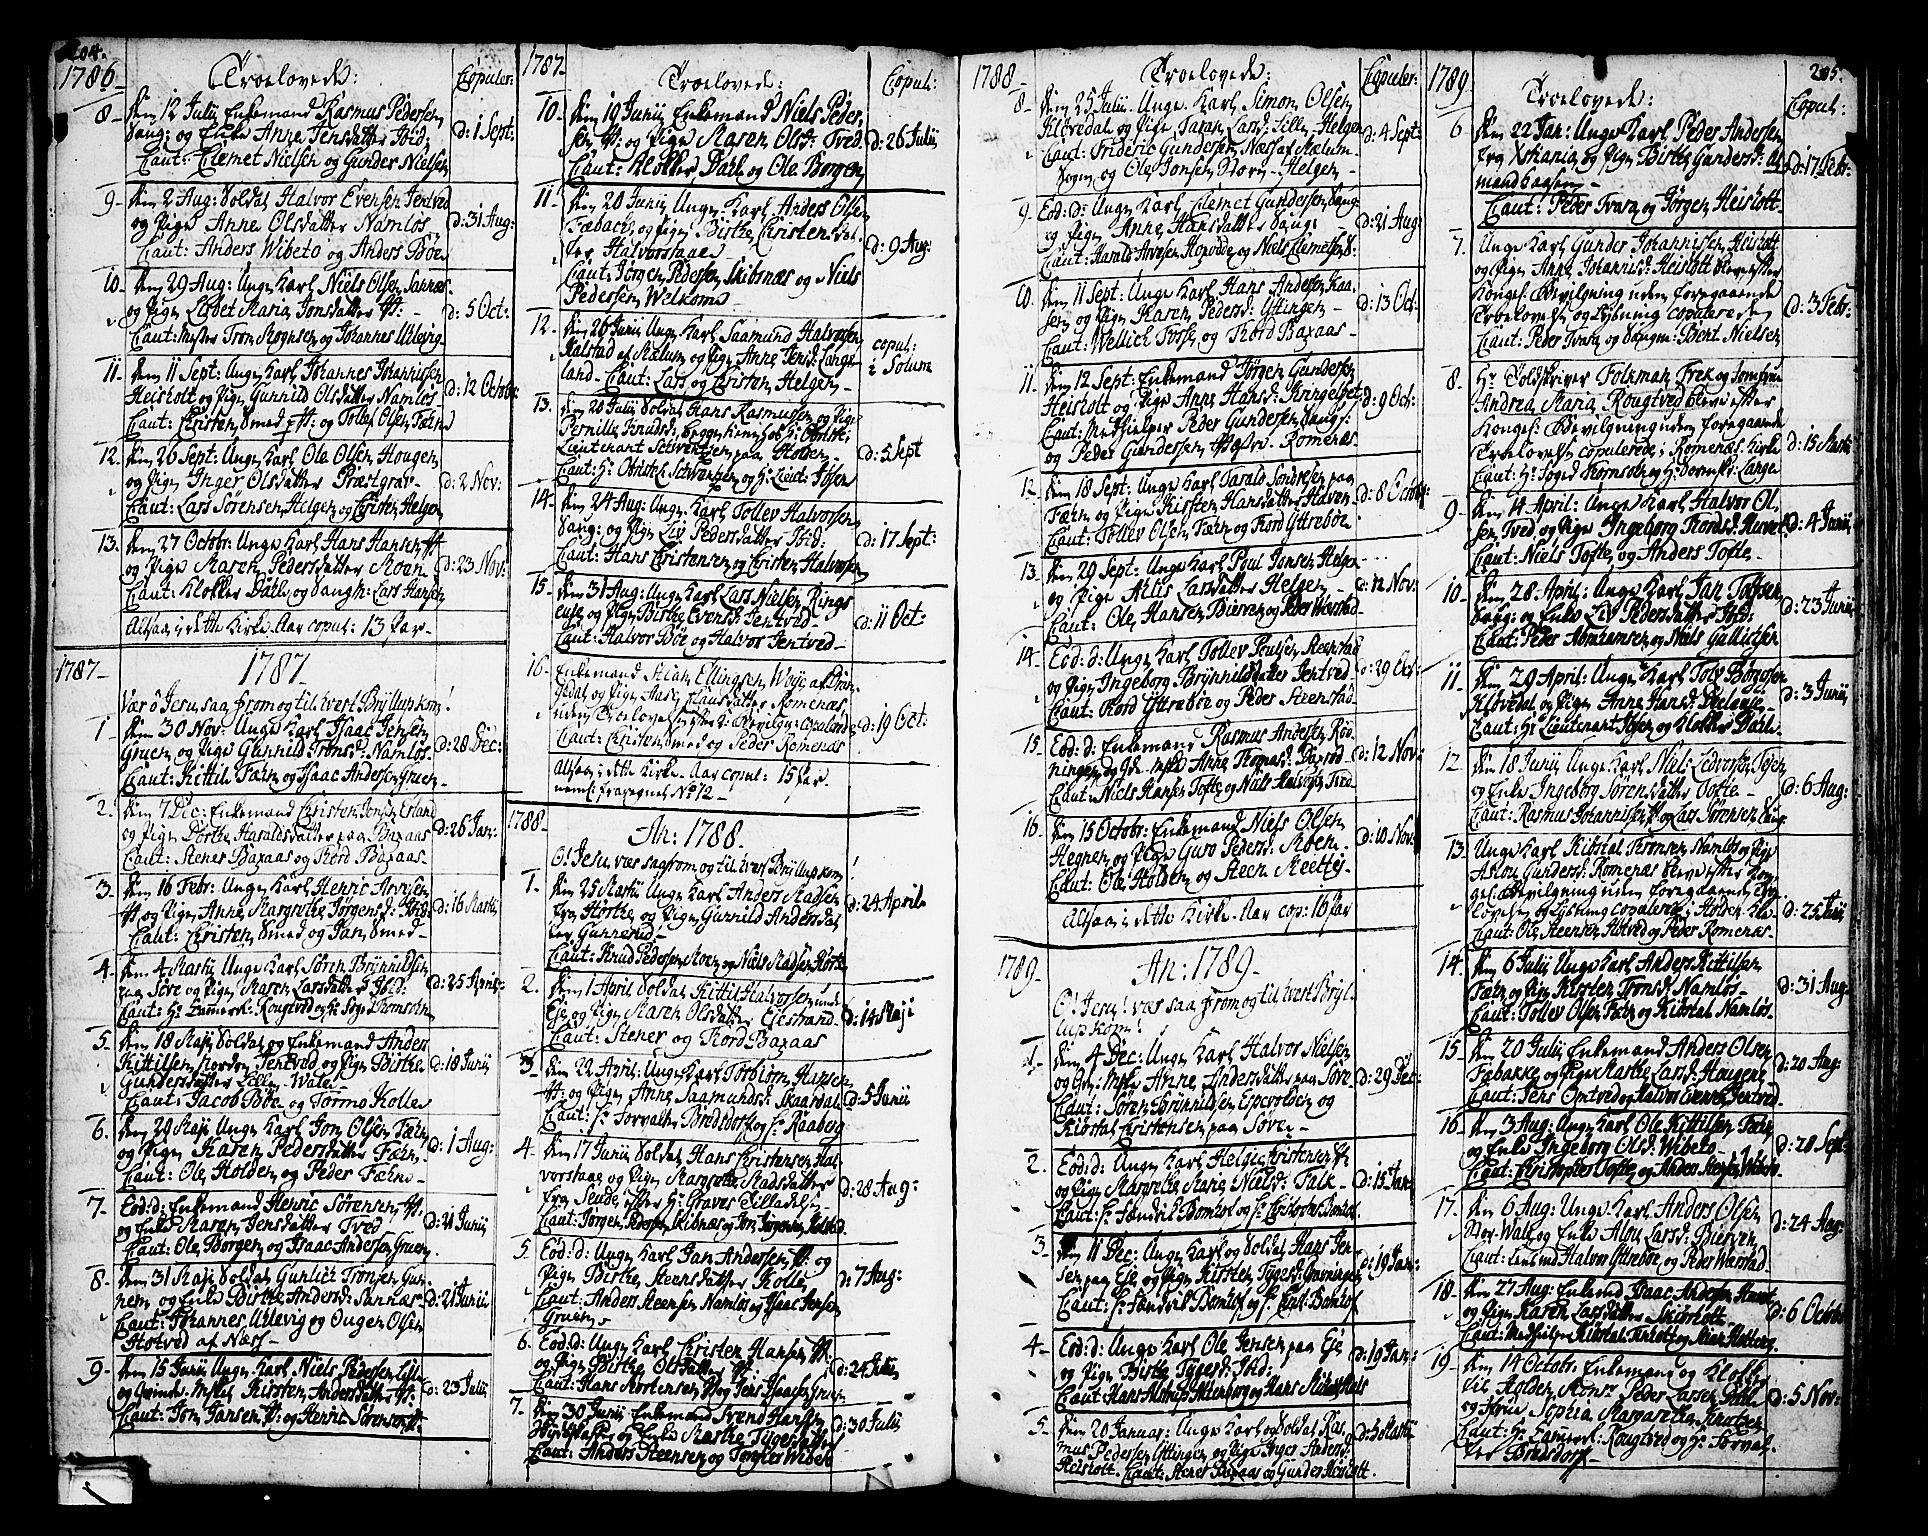 204.
1786
Troelovede:
Copuler:
8. Den 12 Julii Enkemand Rasmus Pedersen
Saug: og Enke Anne Jensdatter Ibid:
Caut: Clemet Nielsen og Gunder Nielsen
d: 1 Sept:
9. Den 2 Aug: Soldat Halvor Evensen Jentved
og Pige Anne Olsdatter Namløs
Caut: Anders Wibeto og Anders Bøe
d: 31 Aug:
10. Den 29 Aug: Unge Karl Niels Olsen Sannæs
og Pigen Lisbet Maria Jonsdatter
Caut: Mester Tron Mognsen og Johannes Ullevig
d: 5 Oct:
11. Den 11 Sept: Unge Karl Johannes Johannissen
Heisholt og Pigen Gunnild Olsdatter Namløs
Caut: Christen Smed og Tollev Olsen Færn
d: 12 Octobr:
12. Den 26 Sept: Unge Karl Ole Olsen Hougen
og Pigen Inger Olsdatter Præstgrav
Caut: Lars Sørensen Helgen og Christen Helgen
d: 2 Nov:
13. Den 27 Octobr: Unge Karl Hans Hansen
og Pige Maren Pedersdatter Moen
Caut: Klokker Dahl og Saugh: Lars Hansen
d: 23 Nov:
Altsaa i dette Kirke-Aar copul: 13 Par
1787
1787
Vær ô Jesu saa from og til vort Bryllup kom!
1. Den 30 Nov: Unge Karl Isaac Jensen
Gruen og Pige Gunnild Tronsd: Namløs
Caut: Kittil Færn og Isaac Andersen Gruen
d: 28 Dec:
2. Den 7 Dec: Enkemand Christen Jonsen Erland
og Pigen Dorthe Haraldsdatter paa Baxaas
Caut: Stener Baxaas og Thord Baxaas
d: 26 Jan:
3. Den 16 Febr: Unge Karl Henric Arvesen
og Pigen Anne Margrethe Jørgensd: Ibid:
Caut: Christen Smed og Jan Smed
d: 16 Martii
4. Den 4 Martii Unge Karl Søren Brynnildsen
paa Søre og Pigen Maren Larsdatter Ibid:
Caut: Hr Cammerr: Rougtved og Hr Sogn: Thomsohn
d: 25 April:
5. Den 18 Maji Soldat og Enkemand Anders
Kittilsen Norden Jentved og Pigen Birthe
Gundersdatter Lille-Wale
Caut: Jacob Bøe og Tormo Kolle
d: 18 Junii
6. Den 20 Maji Unge Karl Jon Olsen Færn
og Pigen Karen Pedersdatter Færn
Caut: Ole Holden og Peder Færn
d: 1 Aug:
7. Eod: d: Enkemand Henric Sørensen
og Enke Maren Jensdatter Tved
Caut: Ole Borgen og Isaac Andersen Gruen
d: 21 Junii
8. Den 31 Maji Soldat Gunlich Tronsen Gur-
nem og Enke Birthe Andersd: Sannæs
Caut: Johannes Ullevig og Ougen Olsen
Hotved af Næss
d: 21 Junii
9. Den 15 Junii Unge Karl Niels Pedersen
og Qvindes Mske Kirsten Andersdatter
Caut: Jon Jansen og Henric Sørensen
d: 23 Julii
1787
Troelovede:
Copul:
10. Den 19 Junii Enkemand Niels Peder-
sen og Pige Maren Olsd: Tved
Caut: Klokker Dahl og Ole Borgen
d: 26 Julii
11. Den 20 Junii Unge Karl Anders Olsen
Fæbach og Pigen Birthe Christensdat-
ter Halvorstaae
Caut: Jørgen Pedersen Skibsnæs og Niels
Pedersen Welkom
d: 9 Aug:
12. Den 26 Junii Unge Karl Saamund Halvorsen
Halstad af Mælum og Pigen Anne Jensd: Lange-
land. Caut: Lars og Christen Helgen
copul:
i Solum
13. Den 20 Julii Soldat Hans Rasmussen og Pige
Pernille Knudsd: begge hos Hr Obrist
Lieutenant Schwenzen paa Holden
Caut: Hr Obristl: Schwenzen og Hr Lieut: Ipsen
d: 5 Sept
14. Den 24 Aug: Unge Karl Tollev Halvorsen
Saug: og Pigen Liv Pedersdatter Ibid:
Caut: Hans Christensen og Christen Halvorsen
d: 17 Sept:
15. Den 31 Aug: Unge Karl Lars Nielsen Rings
eule og Pigen Birthe Evensd: Jentved
Caut: Halvor Bøe og Halvor Jentved
d: 11 Oct:
16. Enkemand Stian Ellingsen Woje af Dran-
gedal og Pigen Aase Klausdatter Romenæs
uden Trolovelse efter Bevilgn: Copulerede
Caut: Christen Smed og Peder Romenæs
d: 19 Oct:
Altsaa i dette Kirke-Aar copul: 15 Par
neml: fragegnet No 12
1788
An: 1788
O! Jesu vær saa from og til vort Bryllup kom!
1. Den 25 Martii Unge Karl Anders Madsen
fra Hørthe og Pigen Gunnild Andersdat-
ter Gunnerud
Caut: Knud Pedersen Moen og Niels Madsen Hørthe
d: 24 April
2. Den 1 April Soldat Kittil Halvorsen und:
Eje og Pigen Maren Olsdatter Ejestrand
Caut: Stener og Thord Baxaas
d: 14 Maji
3. Den 22 April: Unge Karl Torbiørn Hansen
og Pigen Anne Saamundsd: Skaardal
Caut: Sr Torvald Bredsdorf og Sr Raaberg
d: 5 Junii
4. Den 17 Junii Soldat Hans Christensen Hal-
vorstaae og Pigen Margrethe Madsdatter
fra Seude efter Hr Graves Tilladelse
Caut: Jørgen Pedersen Skibsnæs og Jon Jørgensen
d: 28 Aug:
5. Eod: d: Unge Karl Jan Andersen og
Pigen Birthe Steensdatter Kolle
Caut: Anders Steensen Namløs og Isaac Jonsen
Gruen
d: 7 Aug:
6. Eod: d: Unge Karl Christen Hansen
og Pigen Birthe Olsdatter
Caut: Hans Mortensen og Jens Isaachsen Gruen
d: 24 Julii
7. Den 30 Junii Enkemand Svend Hansen
og Enke Marthe Tygesdatter
Caut: Anders Steensen og Torgrer Wibeto
d: 30 Julii
1788
Troelovede:
Copuler:
8. Den 25 Julii Unge Karl Simon Olsen
Kløvedal og Pige Taran Larsd: Lille-Helgen
Caut: Frideric Gundersen Næs af Mælum-
Sogen og Ole Jonsen Horn-Helgen
d: 4 Sept:
9. Eod: D: Unge Karl Clemet Gundersen Saug:
og Pigen Anne Hansdatter Saug:
Caut: Harald Arvesen Hopvde og Niels Clemetsen S:
d: 21 Aug:
10. Den 11 Sept: Unge Karl Hans Andersen Kaa-
sen og Pigen Karen Pedersd: Yttingen
Caut: Wellich Fosse og Thord Baxaas
d: 13 Oct:
11. Den 12 Sept: Enkemand Jørgen Gundersen
Heisholt og Pige Anne Hansd: Kringelset
Caut: Medhjelper Peder Gundersen Saug:
og Peder Gundersen Romenæs
d: 9 Oct:
12. Den 18 Sept: Unge Karl Tarald Sondresen paa
Færn og Pige Kirsten Hansdatter Halven
Caut: Tollev Olsen Færn og Thord Yttrebøe
d: 8 Octobr:
13. Den 29 Sept: Unge Karl Poul Jonsen Helgen
og Pige Allis Larsdatter Helgen
Caut: Ole Hansen Bierven og Peder Warstad
d: 12 Nov:
14. Eod: d: Unge Karl Tollev Poulsen Steenstad
og Pigen Ingeborg Brynnildsdatter Jentved
Caut: Thord Yttrebøe og Peder Steenstad
d: 29 Oct:
15. Eod: d: Enkemand Rasmus Andersen Røn-
ningen og Gde Mske Anne Thomasd: Daxrod
Caut: Niels Hansen Tofte og Niels Halvorsen Tved
d: 12 Nov:
16. Den 15 Octobr: Enkemand Niels Olsen
Hegnen og Pige Guro Pedersd: Moen
Caut: Ole Holden og Steen Reetly
d: 10 Nov:
Altsaa i dette Kirke-Aar cop: 16 Par
1789
An: 1789
O! Jesu! vær saa from og til vort Bryl-
lup kom!
1. Den 4 Dec: Unge Karl Halvor Nielsen
og Qvi: Mske Anne Andersdatter paa Søve
Caut: Søren Brynnildsen Espevolden og
Kiøstal Christensen paa Søve
d: 29 Dec:
2. Eod: d: Unge Karl Helgie Christensen
og Pigen Margrethe Marie Nielsd: Falk
Caut: Sr Fændrik Bomhof og Sr Christopher Bomhof
d: 15 Jan:
3. Den 11 Dec: Unge Karl og Soldat Hans Jen-
sen paa Eje og Pigen Kirsten Tygesd: Gravningen
Caut: Sr Fændrik Bomhof og Sr Lieut: Bomhof
d: 19 Jan:
4. Eod: d: Unge Karl Ole Jensen paa Eje
og Pigen Birthe Tygesd: Ibid:
Caut: Hans Alstrup Altenborg og Hans
d: 19 Jan:
5. Den 20 Januar: Unge Karl og Soldat Ras-
mus Pedersen Yttingen og Pige Inger Andersd:
Heisholt. Caut: Stener Baxaas og Gunder Heisholt
d: 5 Martii
1789
205.
Troelovede:
Copul:
6. Den 22 Jan: Unge Karl Peder Andersen
fra Xstiania og Pigen Birthe Gundersd:
mandbaasen
Caut: Peder Tvara og Jørgen Heisholt
d: 17 Febr:
7. Unge Karl Gunder Johannissen Heisholt
og Pigen Anne Johanisd: Heisholt bleve efter
Kongel: Bevilgning uden foregaaende
Trolovelse og Lysning copulerede
Caut: Peder Tvara og Saugm: Bent Nielsen
d: 3 Febr:
8. Hr Toldskriver Folkman Frek og Jomfrue
Andrea Maria Rougtved bleve efter
Kongel: Bevilgning uden foregaaende
Troelovelse copulerede i Romenæs Kirke
Caut: Hr Sogpd Thomsohn og Hr Sorenskr: Lange
d: 15 Martii
9. Den 14 April: Unge Karl Halvor Ol-
sen Tved og Pige Ingeborg Thordsd: Auver
Caut: Niels Tofte og Anders Tofte
d: 4 Junii
10. Den 28 April: Unge Karl Jan Tostensen
Saug: og Enke Liv Pedersdatter Ibid:
Caut: Peder Abrahamsen og Niels Gullichsen
d: 23 Junii
11. Den 29 April: Unge Karl Tov Børgesen
Kløvedal og Pigen Anne Hansd: Deelane
Caut: Hr Lieutenant Ipsen og Klokker Dahle
d: 3 Junii
12. Den 18 Junii Unge Karl Niels Ledvorsen Tejen
og Enke Ingeborg Sørensdatter Tofte
Caut: Rasmus Johannissen og Lars Sørensen Saug:
d: 6 Aug:
13. Unge Karl Kiøstal Thronsen Namløs og Pige
Aslou Gundersd: Romenæs bleve efter Kon-
gel: Bevilgning uden foregaaende Tro-
lovelse og Lysning copulerede i Holden Kirke
Caut: Ole Steensen Hotved og Peder Romenæs
d: 25 Junii
14. Den 6 Julii Unge Karl Anders Kittilsen
Færn og Pige Kirsten Tronsd: Namløs
Caut: Tollev Olsen Færn og Kiøstal Namløs
d: 31 Aug:
15. Den 20 Julii Enkemand Anders Olsen
Fæbakke og Pige Marthe Larsd: Hougene
Caut: Jens Omtved og Halvor Evensen Jentved
d: 20 Aug:
16. Den 3 Aug: Unge Karl Ole Kittilsen Færn
og Enke Ingeborg Olsd: Wibeto
Caut: Christopher Tofte og Anders Steensen Wibeto
d: 28 Sept:
17. Den 6 Aug: Unge Karl Anders Olsen
Stor-Wale og Enke Alou Larsd: Bierven
Caut: Lensmd Halvor Yttrebøe og Peder Warstad
d: 24 Aug:
18. Den 27 Aug: Enkemand Isaac Andersen
og Pige Karen Larsdatter Skibsholt
Caut: Medhjelper Kiøstal
d: 6 Octobr:
19. Den 14 Octobr: Enkemand og Klokker
til Holden Monsr Peder Larsen Dahle
og Jfrue Sophia Margaretha Knutzen
Caut: Hr Camerr: Rougtved og Hr Torval-
der Bredsdorf
d: 5 Nov: